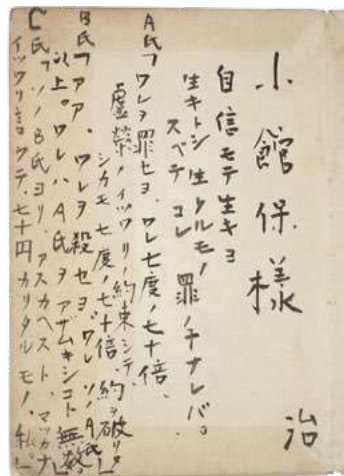 小館保様
治
自信モテ生キヨ
生キトシ生クルモノ
スベテコレ 罪ノ子ナレバ。
A氏「ワレヲ罪セヨ、ワレ七度ノ七十倍、
虚栄ノイツワリノ約束シテ、
シカモ七度ノ七十倍、約ヲ破リタ
B氏「アア、ワレヲ殺セヨ、ワレソノA氏」
以上。ワレハA氏ヲアザムキシコト無数」
C氏「ソノB氏ヨリ、アスカヘスト、マッカナ
イツワリ言ウテ、七十円カリタルモノ、私。」